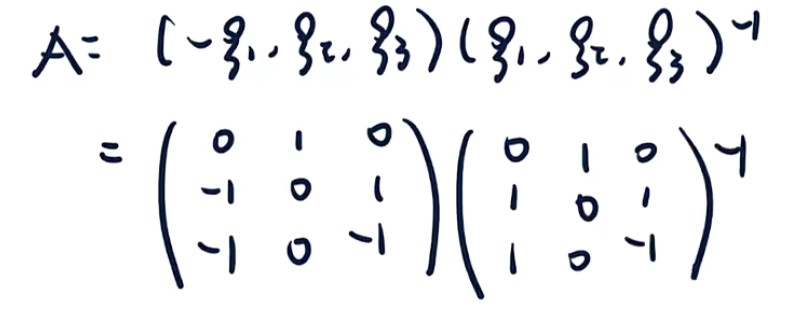 A = (-ξ₁, ξ₂, ξ₃)(ξ₁, ξ₂, ξ₃)⁻¹
= ( 0 1 0 ) ( 0 1 0 )⁻¹
-1 0 1 1 0 1
-1 0 -1 1 0 -1